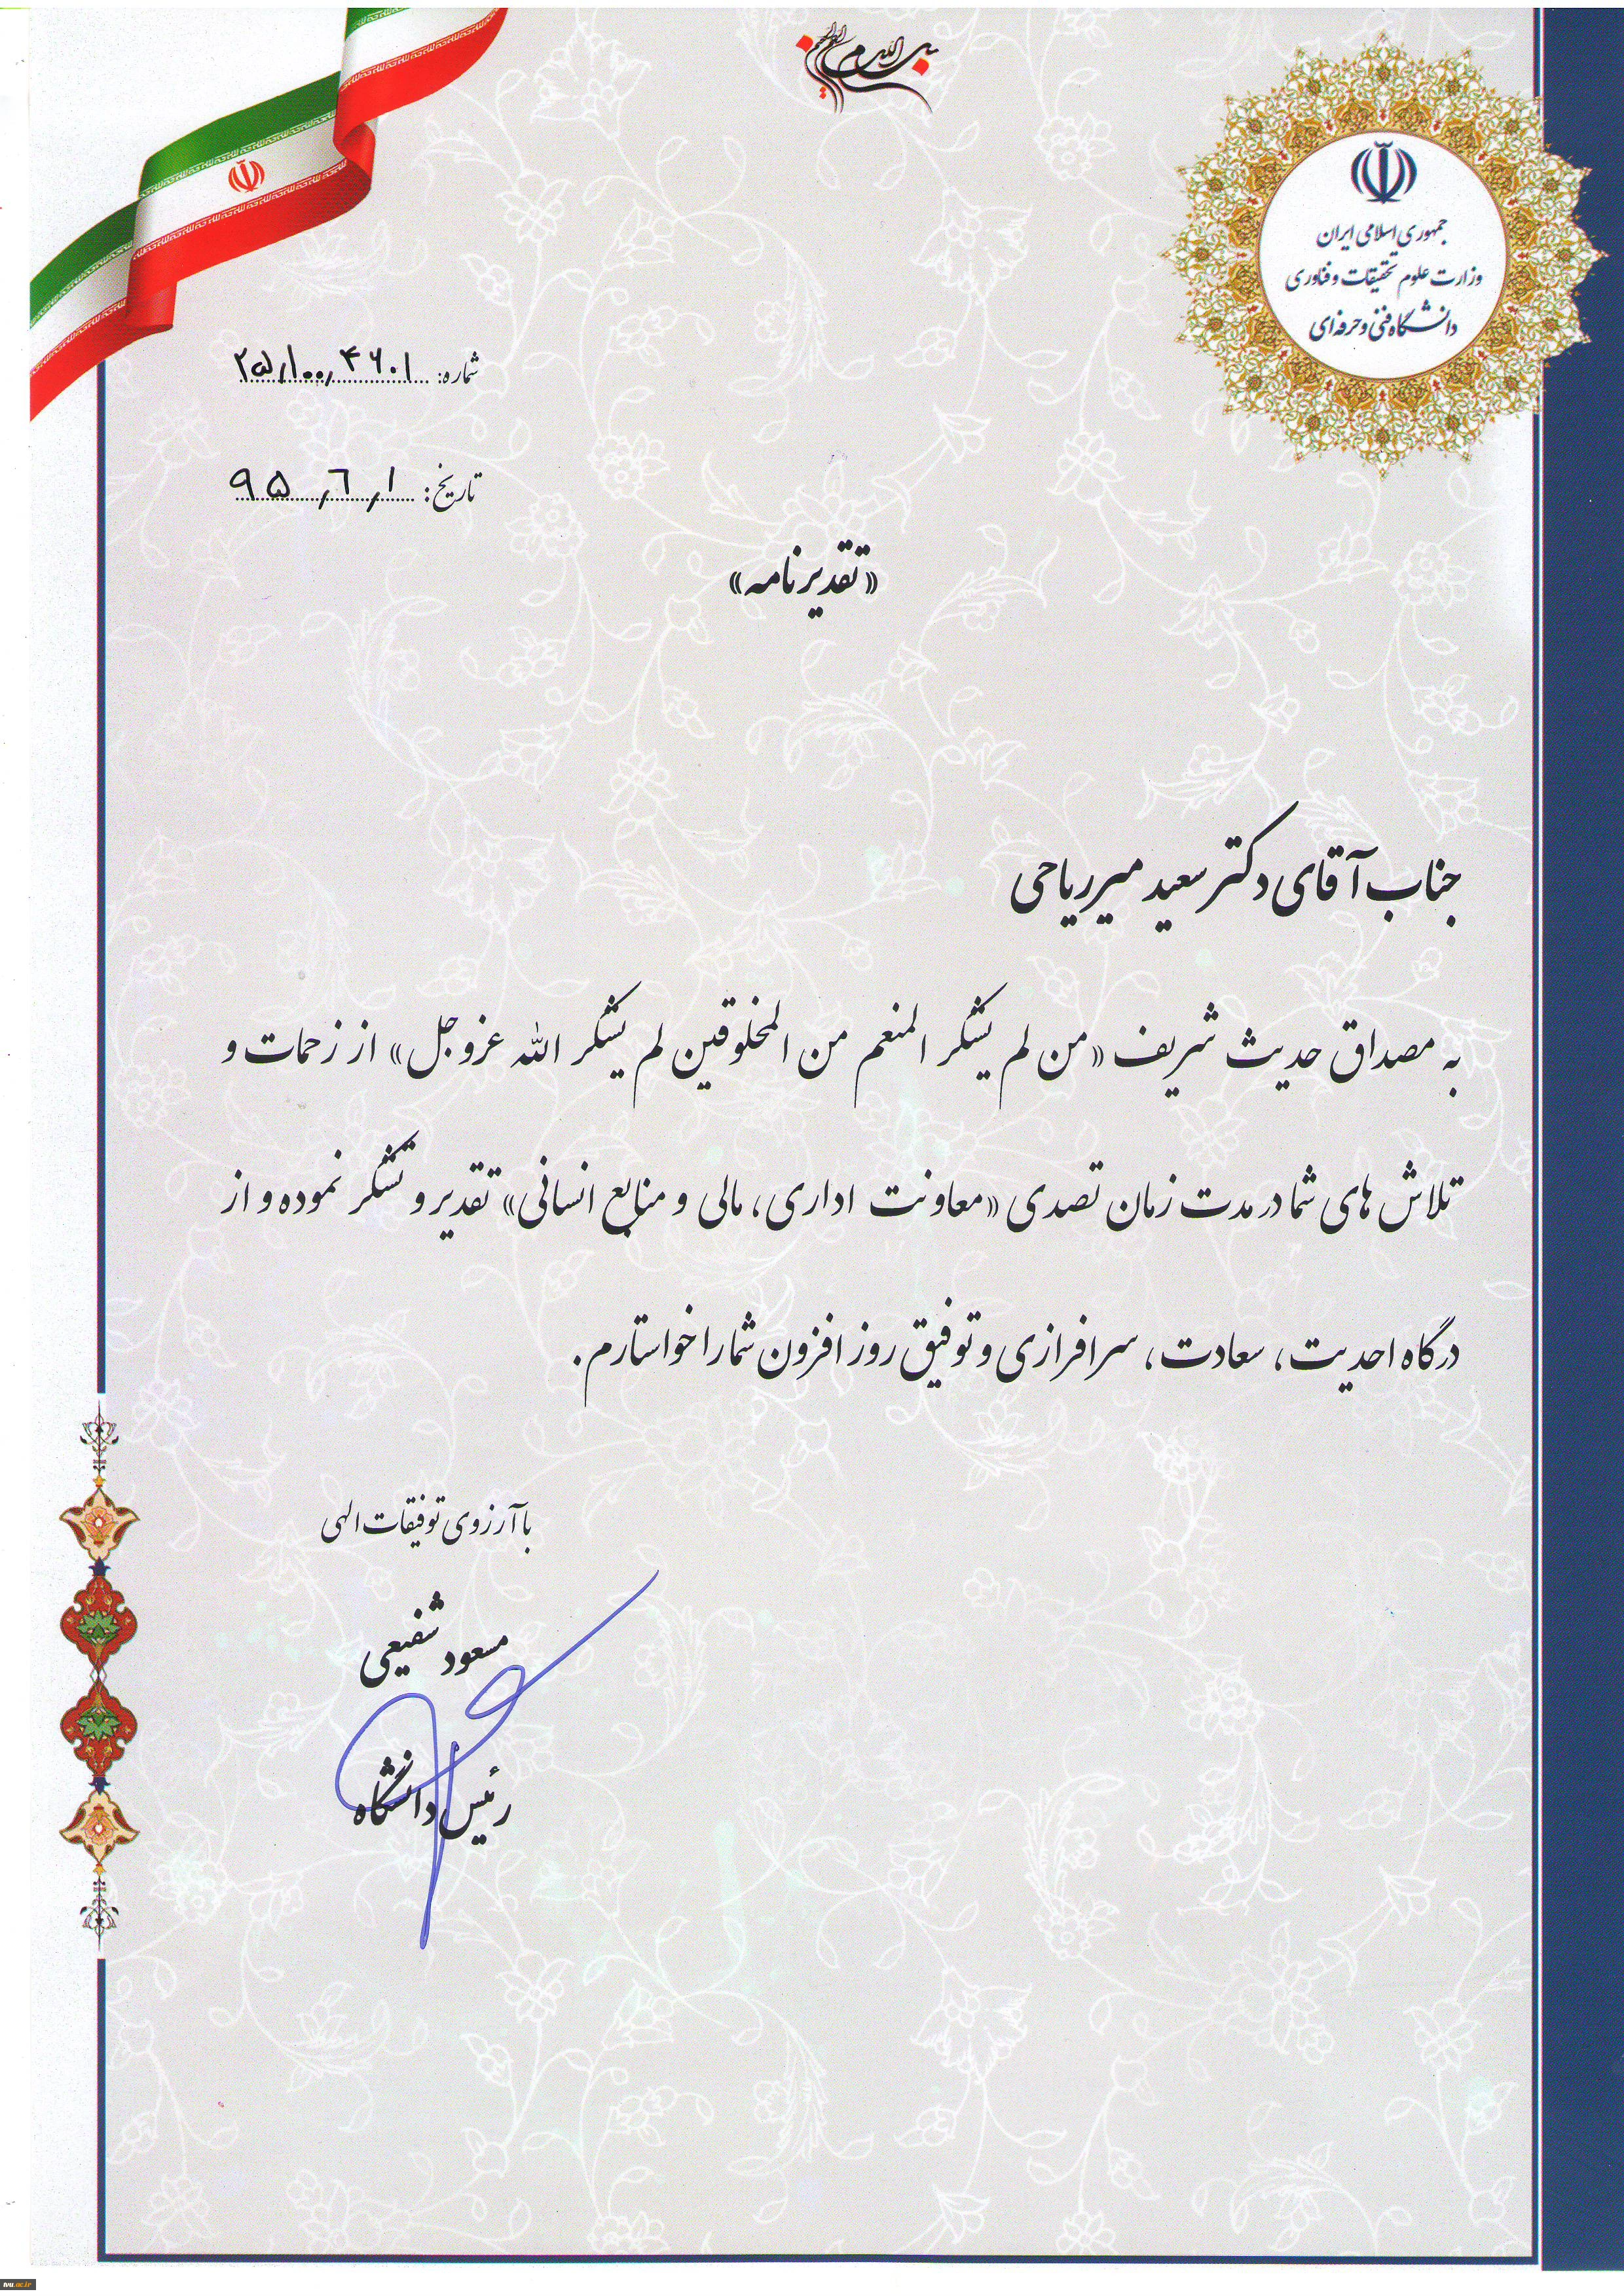 بسم الله الرحمن الرحیم
جمهوری اسلامی ایران
وزارت علوم تحقیقات و فناوری
دانشگاه فنی و حرفه‌ای
شماره: ۲۵/۱۰۰/۴۶۰۱
تاریخ: ۹۵/۶/۱
«تقدیرنامه»
جناب آقای دکتر سعید میرریاحی
به مصداق حدیث شریف «من لم یشکر المنعم من المخلوقین لم یشکر الله عزوجل» از زحمات و
تلاش های شما در مدت زمان تصدی «معاونت اداری، مالی و منابع انسانی» تقدیر و تشکر نموده و از
درگاه احدیت، سعادت، سرافرازی و توفیق روز افزون شما را خواستارم.
با آرزوی توفیقات الهی
مسعود شفیعی
رئیس دانشگاه
tvu.ac.ir